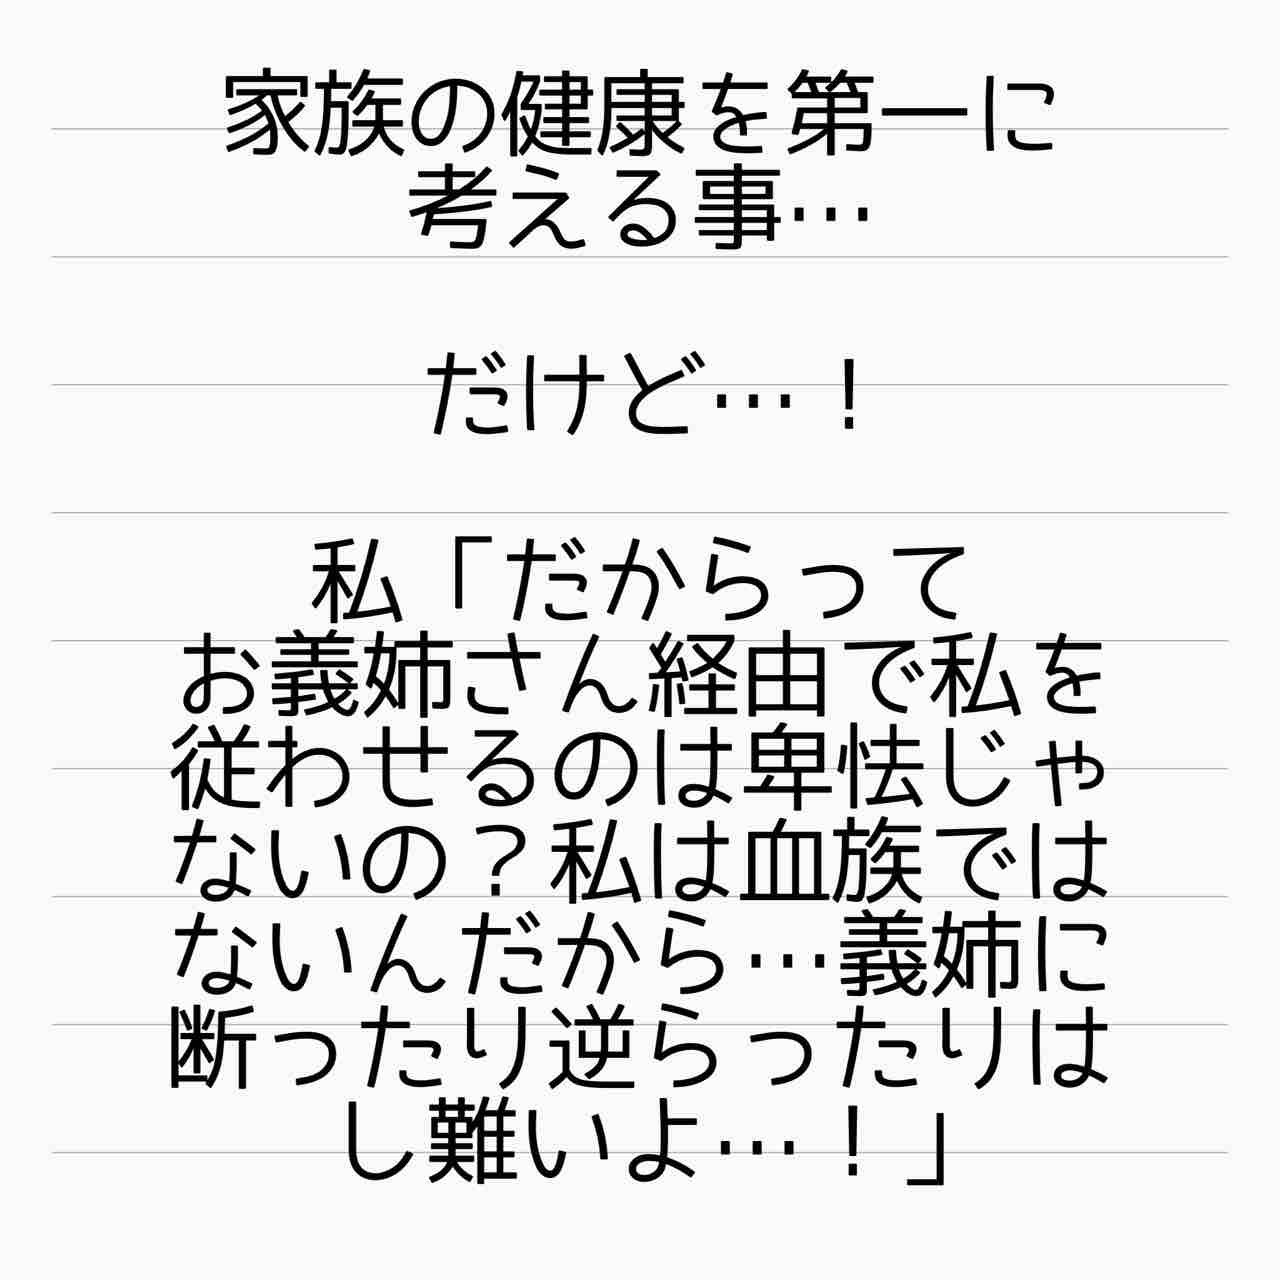 家族の健康を第一に
考える事…
だけど…！
私「だからって
お義姉さん経由で私を
従わせるのは卑怯じゃ
ないの？私は血族では
ないんだから…義姉に
断ったり逆らったりは
し難いよ…！」